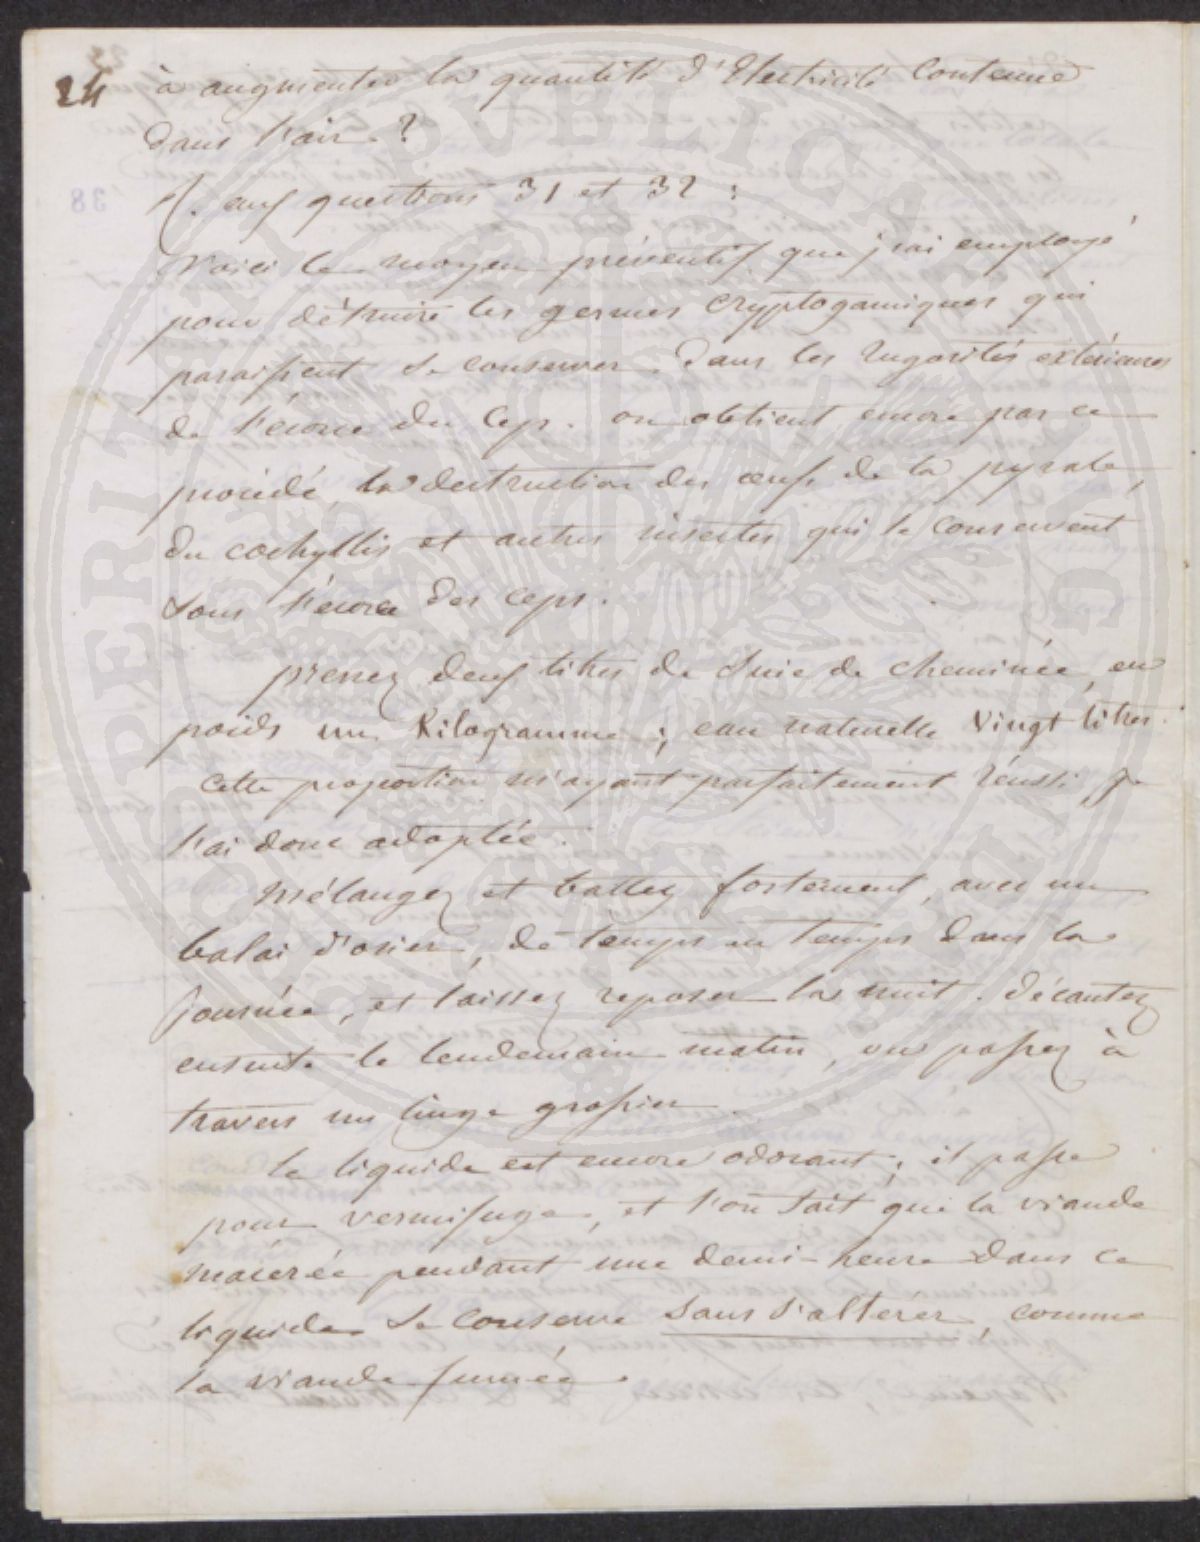 24
à augmenter la quantité d'Electricité Contenue
dans l'air ?
R. aux questions 31 et 32 :
Voici le moyen préventif que j'ai employé
pour détruire les germes cryptogamiques qui
paraissent se conserver dans les rugosités extérieures
de l'écorce du Cep. on obtient encore par ce
procédé, la destruction des œufs de la pyrale,
du cochyllis et autres insectes qui se conservent
sous l'écorce des ceps.
prenez deux litres de Suie de cheminée, en
poids un Kilogramme ; eau naturelle Vingt litres.
Cette proportion m'ayant parfaitement réussi, je
l'ai donc adoptée.
Mélangez et battez fortement, avec un
balai d'osier, de temps en temps dans la
journée, et laissez reposer la nuit. Décantez
ensuite le lendemain matin, ou passez à
travers un linge grossier.
le liquide est encore odorant ; il passe
pour vermifuge, et l'on sait que la viande
macérée pendant une demi-heure dans ce
liquide se conserve sans s'altérer, comme
la viande fumée.
38
PERITAT PVBLICA